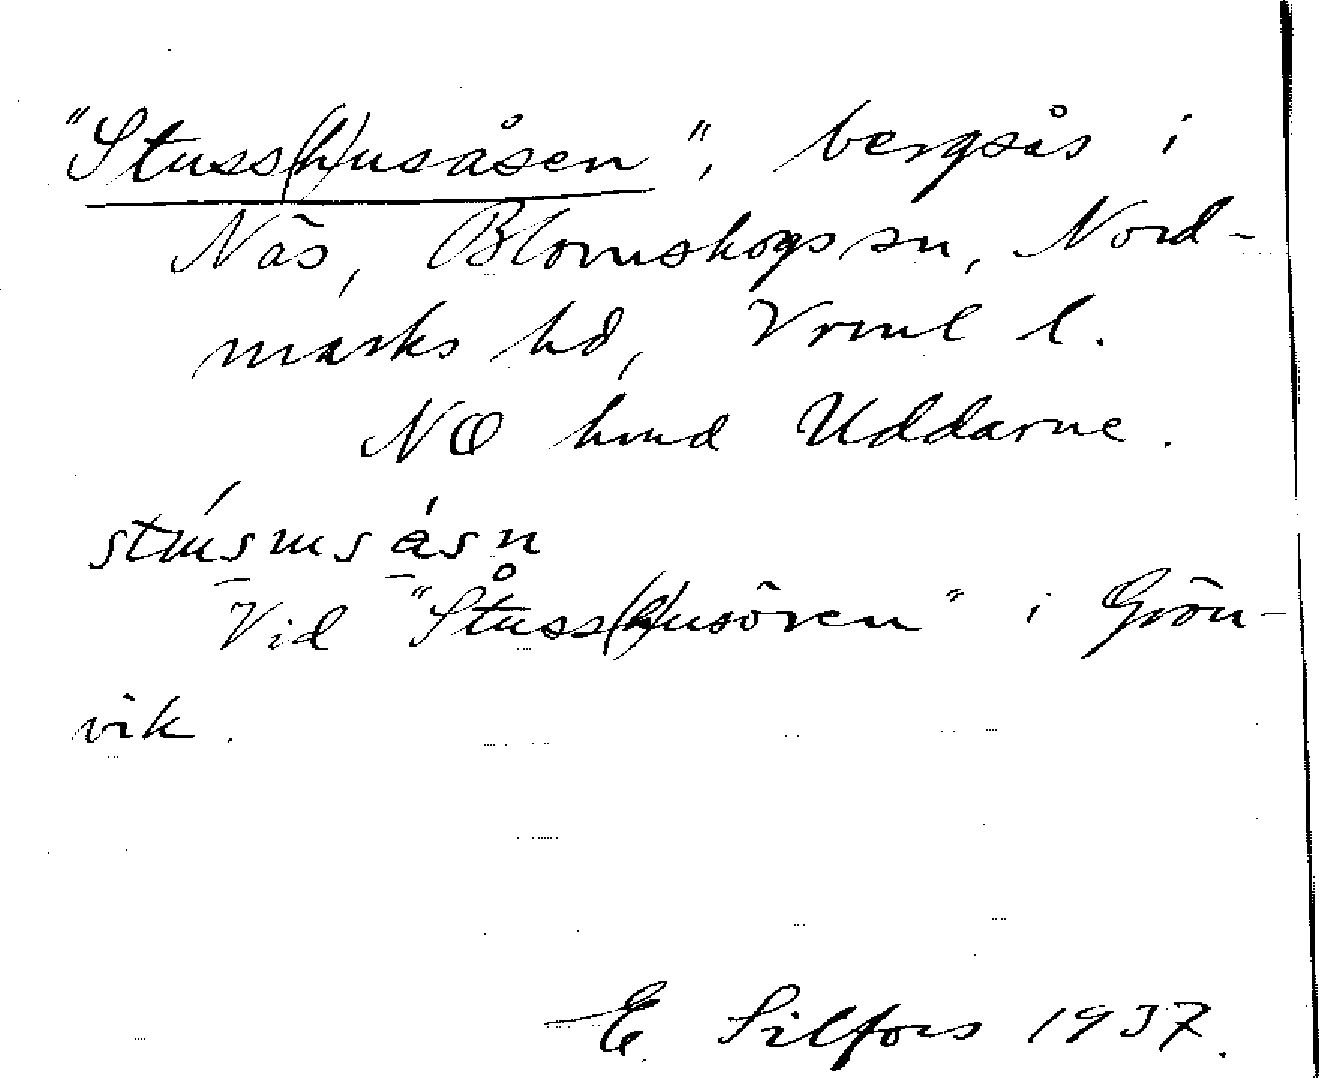 "Stuss(h)usåsen", bergsås i
Näs, Blomskogs sn, Nord-
marks hd, Vrml l.
NO hmd Uddarne.
stususåsn
Vid "Stuss(h)usören" i Grön-
vik.
E. Silfors 1937.